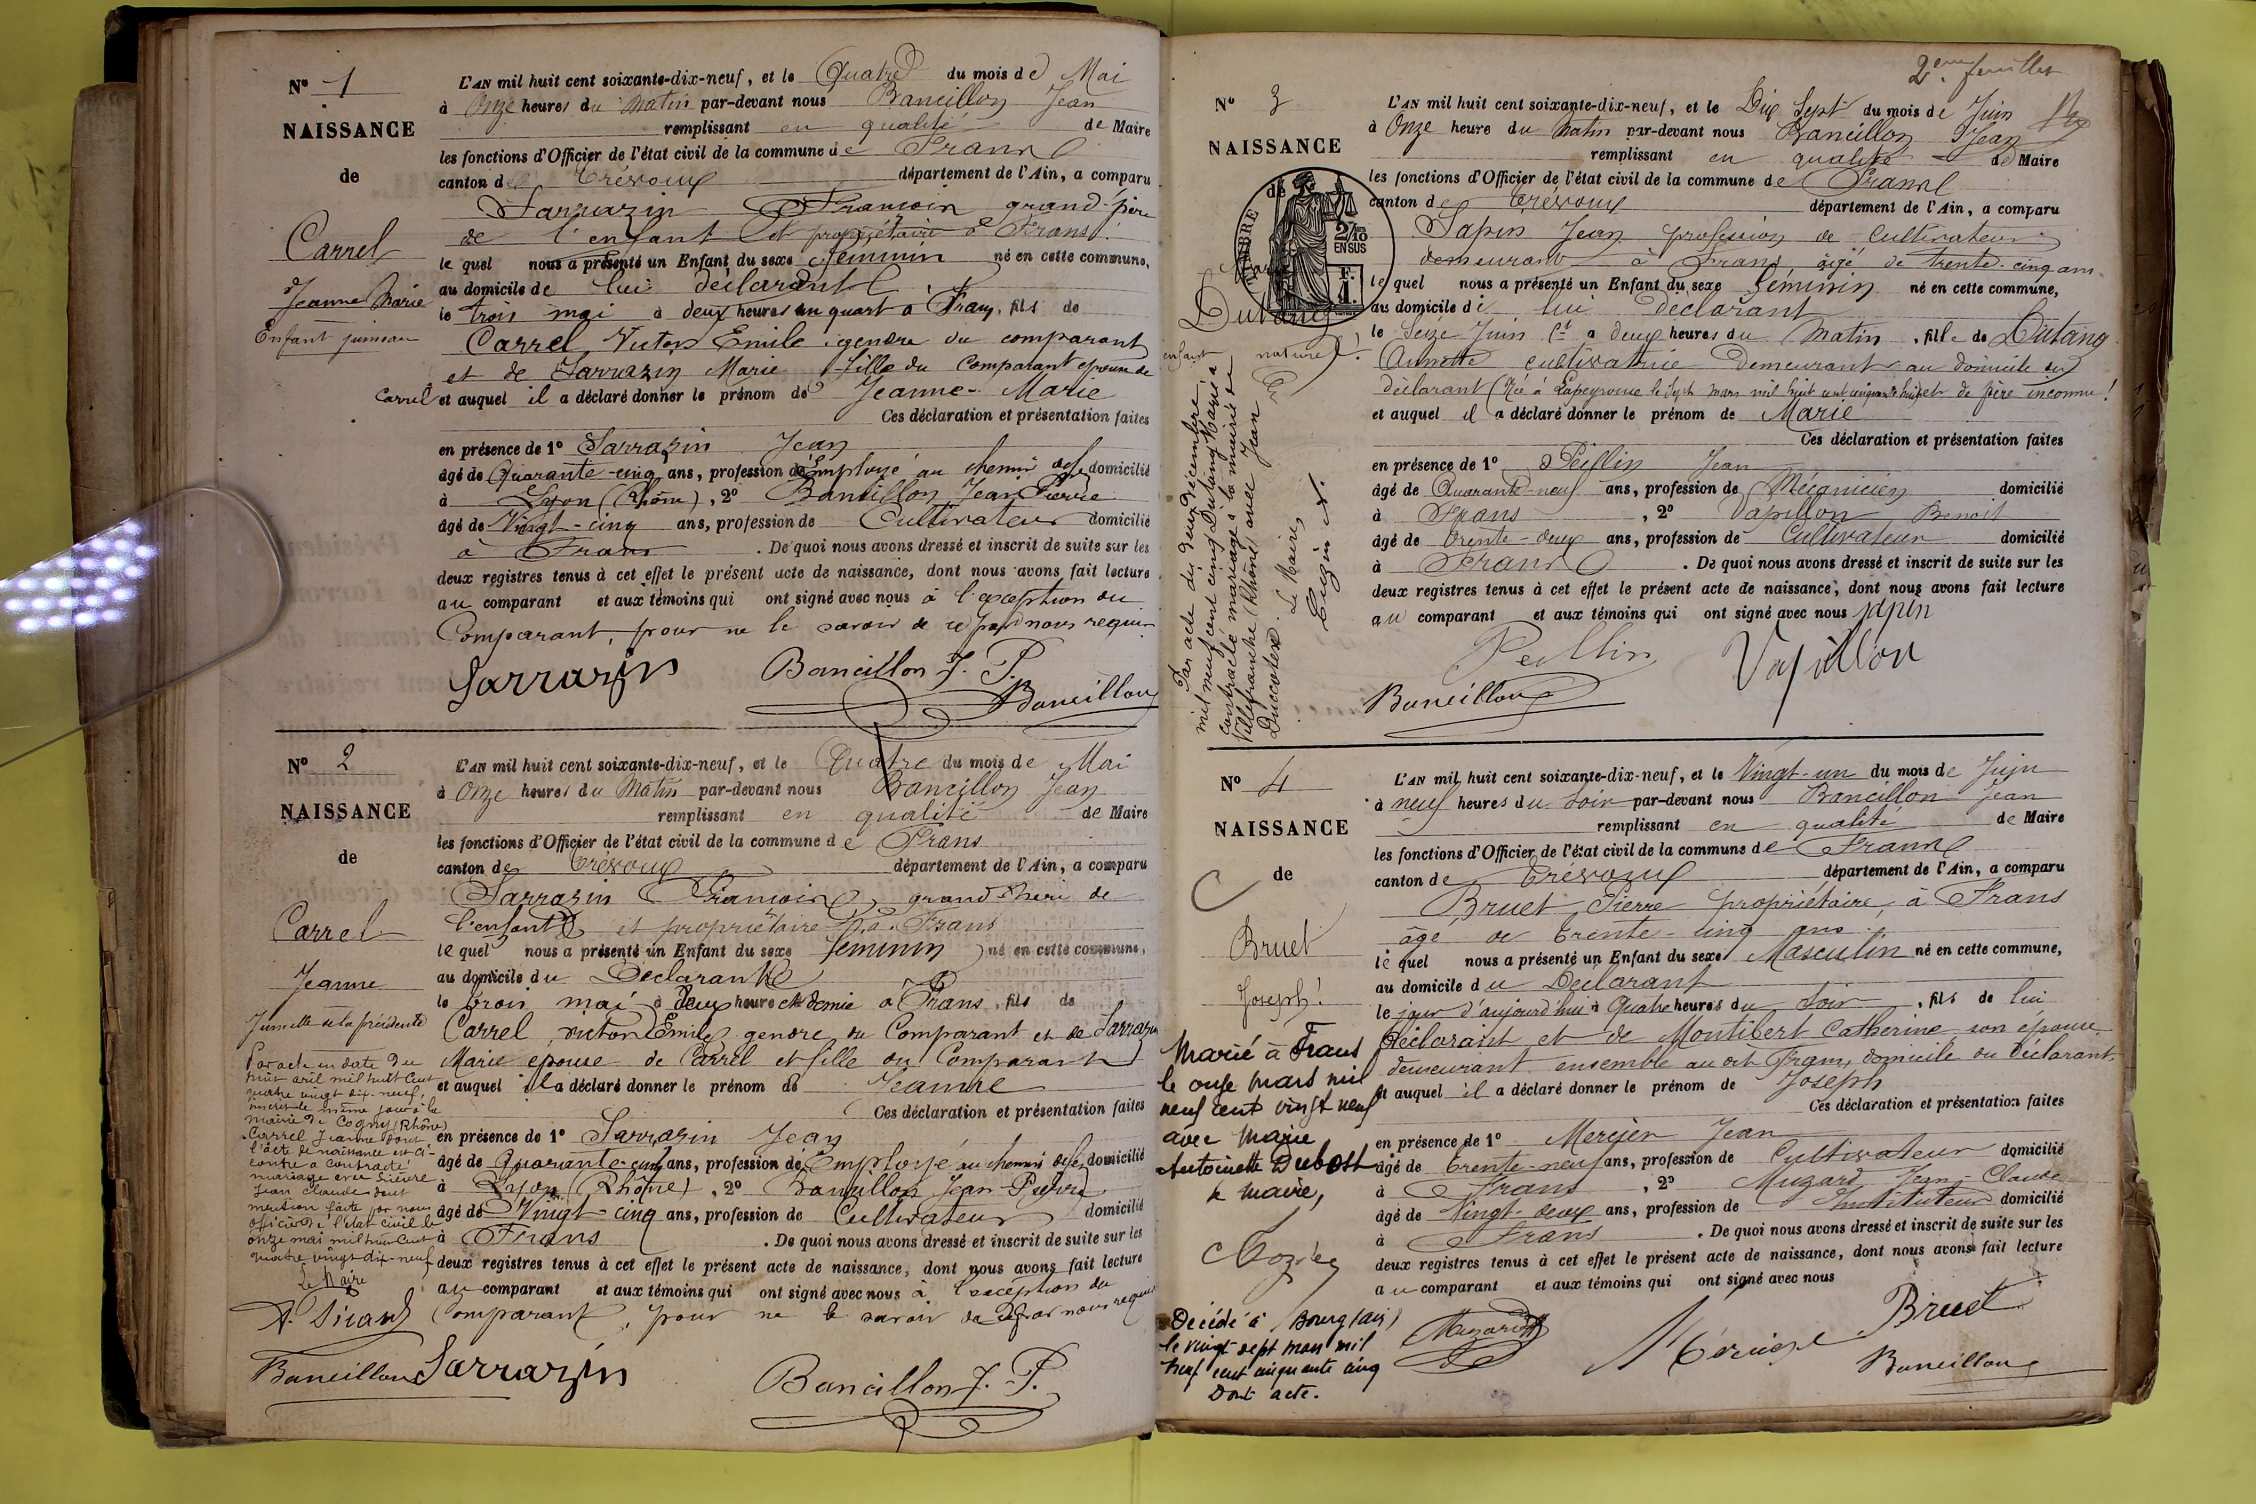 Nº 1
NAISSANCE
de
Carrel
Jeanne Marie
Enfant jumeau
L'AN mil huit cent soixante-dix-neuf, et le Quatre du mois de Mai
à Onze heures du Matin par-devant nous Bancillon Jean
remplissant en qualité de Maire
les fonctions d'Officier de l'état civil de la commune de Frans
canton de Trévoux département de l'Ain, a comparu
Sarrazin François grand-père
de l'enfant et propriétaire à Frans
le quel nous a présenté un Enfant du sexe féminin né en cette commune,
au domicile de lui déclarant
le trois mai à deux heures un quart à Frans, fils de
Carrel Victor Emile gendre du comparant
et de Sarrazin Marie fille du Comparant épouse de
Carrel et auquel il a déclaré donner le prénom de Jeanne-Marie
Ces déclaration et présentation faites
en présence de 1º Sarrazin Jean
âgé de Quarante-cinq ans, profession de Employé au chemin de fer domicilié
à Lyon (Rhône), 2º Bancillon Jean Pierre
âgé de Vingt-cinq ans, profession de Cultivateur domicilié
à Frans. De quoi nous avons dressé et inscrit de suite sur les
deux registres tenus à cet effet le présent acte de naissance, dont nous avons fait lecture
au comparant et aux témoins qui ont signé avec nous à l'exception du
Comparant, pour ne le savoir de ce par nous requis
Sarrazin Bancillon J. P.
Bancillon
Nº 2
NAISSANCE
de
Carrel
Jeanne
Jumelle de la précédente
Par acte en date du
huit avril mil huit cent
quatre vingt dix-neuf,
inscrit le même jour à la
mairie de Cogny (Rhône)
Carrel Jeanne dont
l'acte de naissance est ci-
contre a contracté
mariage avec Lièvre
Jean Claude dont
mention faite par nous
officier de l'état civil le
onze mai mil huit cent
quatre vingt dix-neuf
Le Maire
L'AN mil huit cent soixante-dix-neuf, et le Quatre du mois de Mai
à Onze heures du Matin par-devant nous Bancillon Jean
remplissant en qualité de Maire
les fonctions d'Officier de l'état civil de la commune de Frans
canton de Trévoux département de l'Ain, a comparu
Sarrazin François, grand père de
l'enfant et propriétaire à Frans
le quel nous a présenté un Enfant du sexe féminin né en cette commune,
au domicile du Déclarant
le trois mai à Deux heure et demie à Frans, fils de
Carrel, Victor Emile, gendre du Comparant et de Sarrazin
Marie épouse de Carrel et fille du Comparant
et auquel il a déclaré donner le prénom de Jeanne
Ces déclaration et présentation faites
en présence de 1º Sarrazin Jean
âgé de Quarante-cinq ans, profession de Employé au chemin de fer domicilié
à Lyon (Rhône), 2º Bancillon Jean-Pierre
âgé de Vingt-cinq ans, profession de Cultivateur domicilié
à Frans. De quoi nous avons dressé et inscrit de suite sur les
deux registres tenus à cet effet le présent acte de naissance, dont nous avons fait lecture
au comparant et aux témoins qui ont signé avec nous à l'exception du
Comparant, pour ne le savoir de ce par nous requis
Bancillon Sarrazin Bancillon J. P.
2eme feuillet
Nº 3
NAISSANCE
de
TIMBRE
2/10 EN SUS
Marie
Dutang
enfant naturel!
Par acte du deux décembre
mil neuf cent cinq Dutang Marie a
contracté mariage à la mairie de
Villefranche (Rhône) avec Jean
Le Maire,
L'AN mil huit cent soixante-dix-neuf, et le Dix Sept du mois de Juin
à Onze heure du Matin par-devant nous Bancillon Jean
remplissant en qualité de Maire
les fonctions d'Officier de l'état civil de la commune de Frans
canton de Trévoux département de l'Ain, a comparu
Sapin Jean profession de Cultivateur
demeurant à Frans âgé de trente-cinq ans
le quel nous a présenté un Enfant du sexe féminin né en cette commune,
au domicile de lui déclarant
le Seize Juin Ct à deux heures du Matin, fille de Dutang
Annette cultivatrice Demeurant au domicile du
déclarant (Née à Lapeyrouse le Sept mars mil huit cent cinquante huit) et de père inconnu!
et auquel il a déclaré donner le prénom de Marie
Ces déclaration et présentation faites
en présence de 1º Peillin Jean
âgé de Quarante-neuf ans, profession de Mécanicien domicilié
à Frans, 2º Vapillon Benoit
âgé de trente-deux ans, profession de Cultivateur domicilié
à Frans. De quoi nous avons dressé et inscrit de suite sur les
deux registres tenus à cet effet le présent acte de naissance, dont nous avons fait lecture
au comparant et aux témoins qui ont signé avec nous Sapin
Peillin Vapillon
Bancillon
Nº 4
NAISSANCE
de
Bruet
Joseph!
Marié à Frans
le onze mars mil
neuf cent vingt neuf
avec Marie
Antoinette Dubost
le maire,
Décédé à Bourg (Ain)
le vingt sept mars mil
neuf cent cinquante cinq
Dont acte.
L'AN mil huit cent soixante-dix-neuf, et le Vingt-un du mois de Juin
à neuf heures du Soir par-devant nous Bancillon Jean
remplissant en qualité de Maire
les fonctions d'Officier de l'état civil de la commune de Frans
canton de Trévoux département de l'Ain, a comparu
Bruet Pierre propriétaire, à Frans
âgé de trente-cinq ans
le quel nous a présenté un Enfant du sexe Masculin né en cette commune,
au domicile du Déclarant
le jour d'aujourd'hui à Quatre heures du Soir, fils de lui
déclarant et de Montibert Catherine son épouse
demeurant ensemble au dit Frans, domicile du Déclarant
et auquel il a déclaré donner le prénom de Joseph
Ces déclaration et présentation faites
en présence de 1º Mercier Jean
âgé de trente-neuf ans, profession de Cultivateur domicilié
à Frans, 2º Muzard Jean Claude
âgé de Vingt-deux ans, profession de Instituteur domicilié
à Frans. De quoi nous avons dressé et inscrit de suite sur les
deux registres tenus à cet effet le présent acte de naissance, dont nous avons fait lecture
au comparant et aux témoins qui ont signé avec nous
Muzard Mercier Bruet
Bancillon